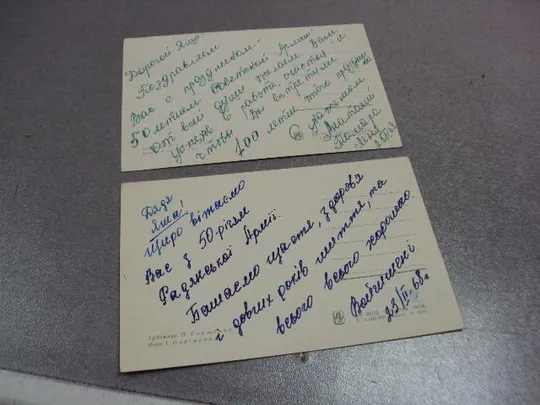 Дорогой Яша!
Поздравляем
Вас с праздником
50 летием Советской Армии!
От всей души желаем Вам
успехов в работе, счастья и
чтобы Вы встретили
100 летие этого праздника
Тамара
Дядя
Яша!
Щиро вітаємо
Вас з 50-річчям
Радянської Армії.
Бажаємо щастя, здоров'я
і довгих років життя, та
всього всього хорошого.
23/II-68.
Художник П.
Фото І.